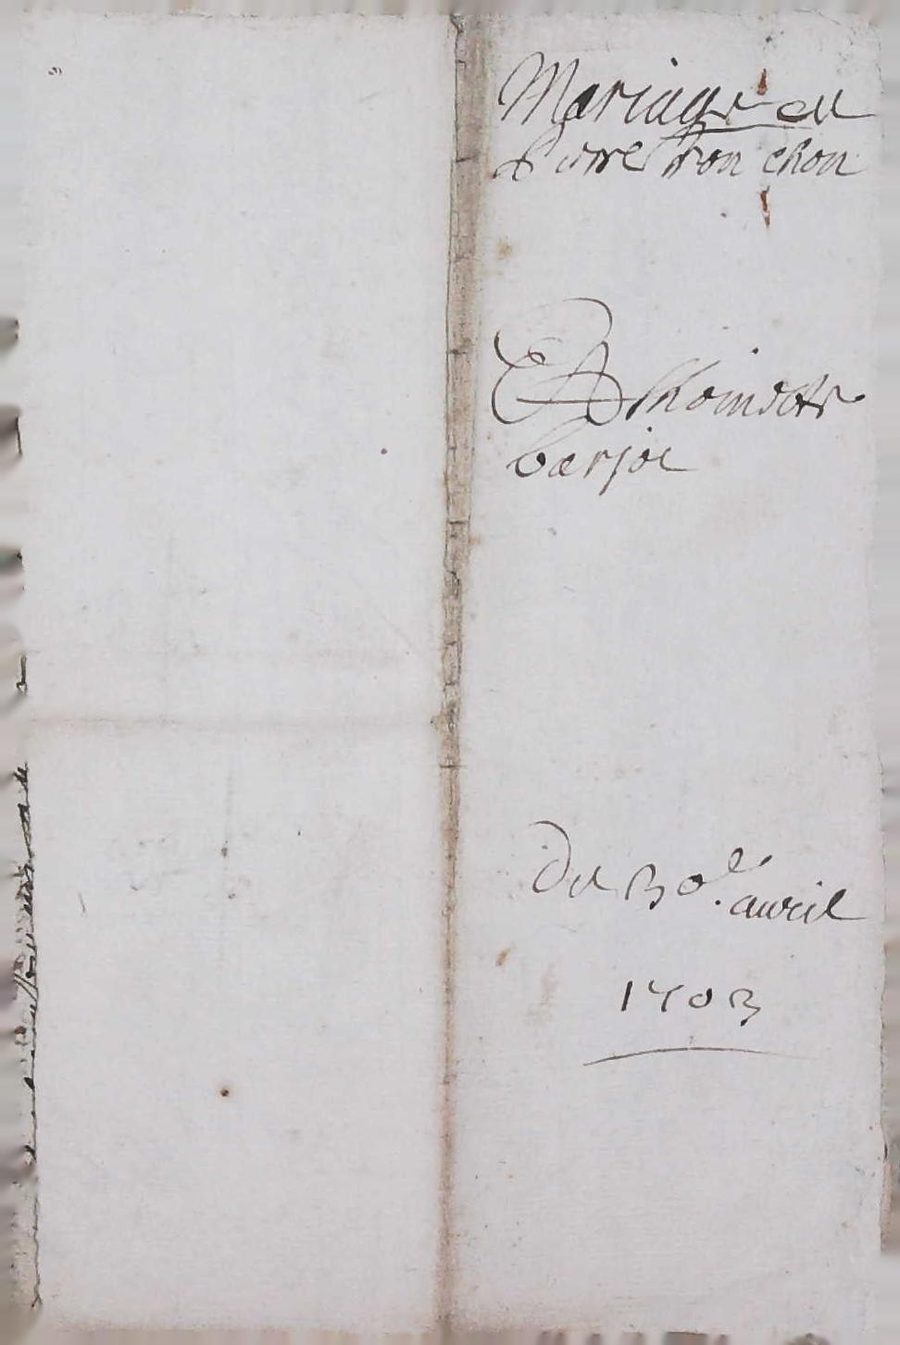 Mariage du
Pierre Fronchon
Et Thoinette
barjoe
Du 30e. auril
1703